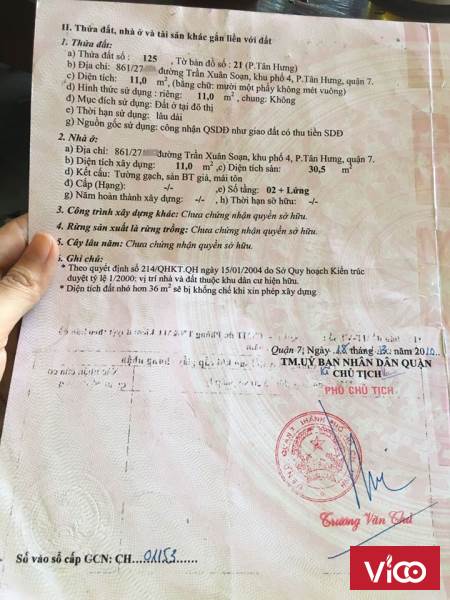 II. Thửa đất, nhà ở và tài sản khác gắn liền với đất
1. Thửa đất:
a) Thửa đất số : 125 , Tờ bản đồ số : 21 (P.Tân Hưng)
b) Địa chỉ: 861/27 đường Trần Xuân Soạn, khu phố 4, P.Tân Hưng, quận 7.
c) Diện tích: 11,0 m², (bằng chữ: mười một phẩy không mét vuông)
d) Hình thức sử dụng : riêng: 11,0 m², chung: Không
đ) Mục đích sử dụng: Đất ở tại đô thị
e) Thời hạn sử dụng: lâu dài
g) Nguồn gốc sử dụng: công nhận QSDĐ như giao đất có thu tiền SDĐ
2. Nhà ở :
a) Địa chỉ: 861/27 đường Trần Xuân Soạn, khu phố 4, P.Tân Hưng, quận 7.
b) Diện tích xây dựng: 11,0 m² ,c) Diện tích sàn: 30,5 m²
d) Kết cấu: Tường gạch, sàn BT giả, mái tôn
đ) Cấp (Hạng): -/- ,e) Số tầng: 02 + Lửng
g) Năm hoàn thành xây dựng: -/- , h) Thời hạn sở hữu: -/-
3. Công trình xây dựng khác: Chưa chứng nhận quyền sở hữu.
4. Rừng sản xuất là rừng trồng: Chưa chứng nhận quyền sở hữu.
5. Cây lâu năm: Chưa chứng nhận quyền sở hữu.
6. Ghi chú:
* Theo quyết định số 214/QHKT.QH ngày 15/01/2004 do Sở Quy hoạch Kiến trúc
duyệt tỷ lệ 1/2000; vị trí nhà và đất thuộc khu dân cư hiện hữu.
* Diện tích đất nhỏ hơn 36 m² sẽ bị khống chế khi xin phép xây dựng.
Quận 7, Ngày 18 tháng 3 năm 2010
TM.UỶ BAN NHÂN DÂN QUẬN
CHỦ TỊCH
PHÓ CHỦ TỊCH
Trương Văn Thu
Số vào sổ cấp GCN: CH.....01153...
VICO